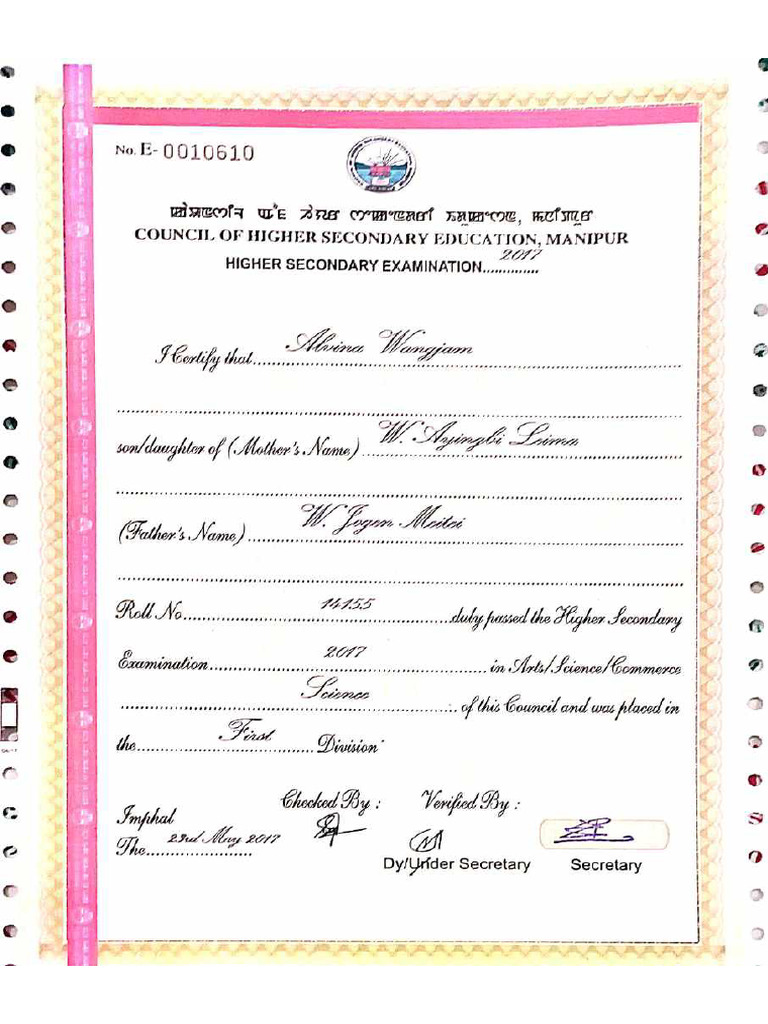 No. E- 0010610
COUNCIL OF HIGHER SECONDARY EDUCATION, MANIPUR
HIGHER SECONDARY EXAMINATION..............2017
I Certify that Alvina Wangjam
son/daughter of (Mother's Name) W. Ayingbi Leima
(Father's Name) W. Jogen Meitei
Roll No. 14155 duly passed the Higher Secondary
Examination 2017 in Arts/Science/Commerce
Science of this Council and was placed in
the First Division
Checked By : Verified By :
Imphal
The 23rd May 2017
Dy/Under Secretary Secretary